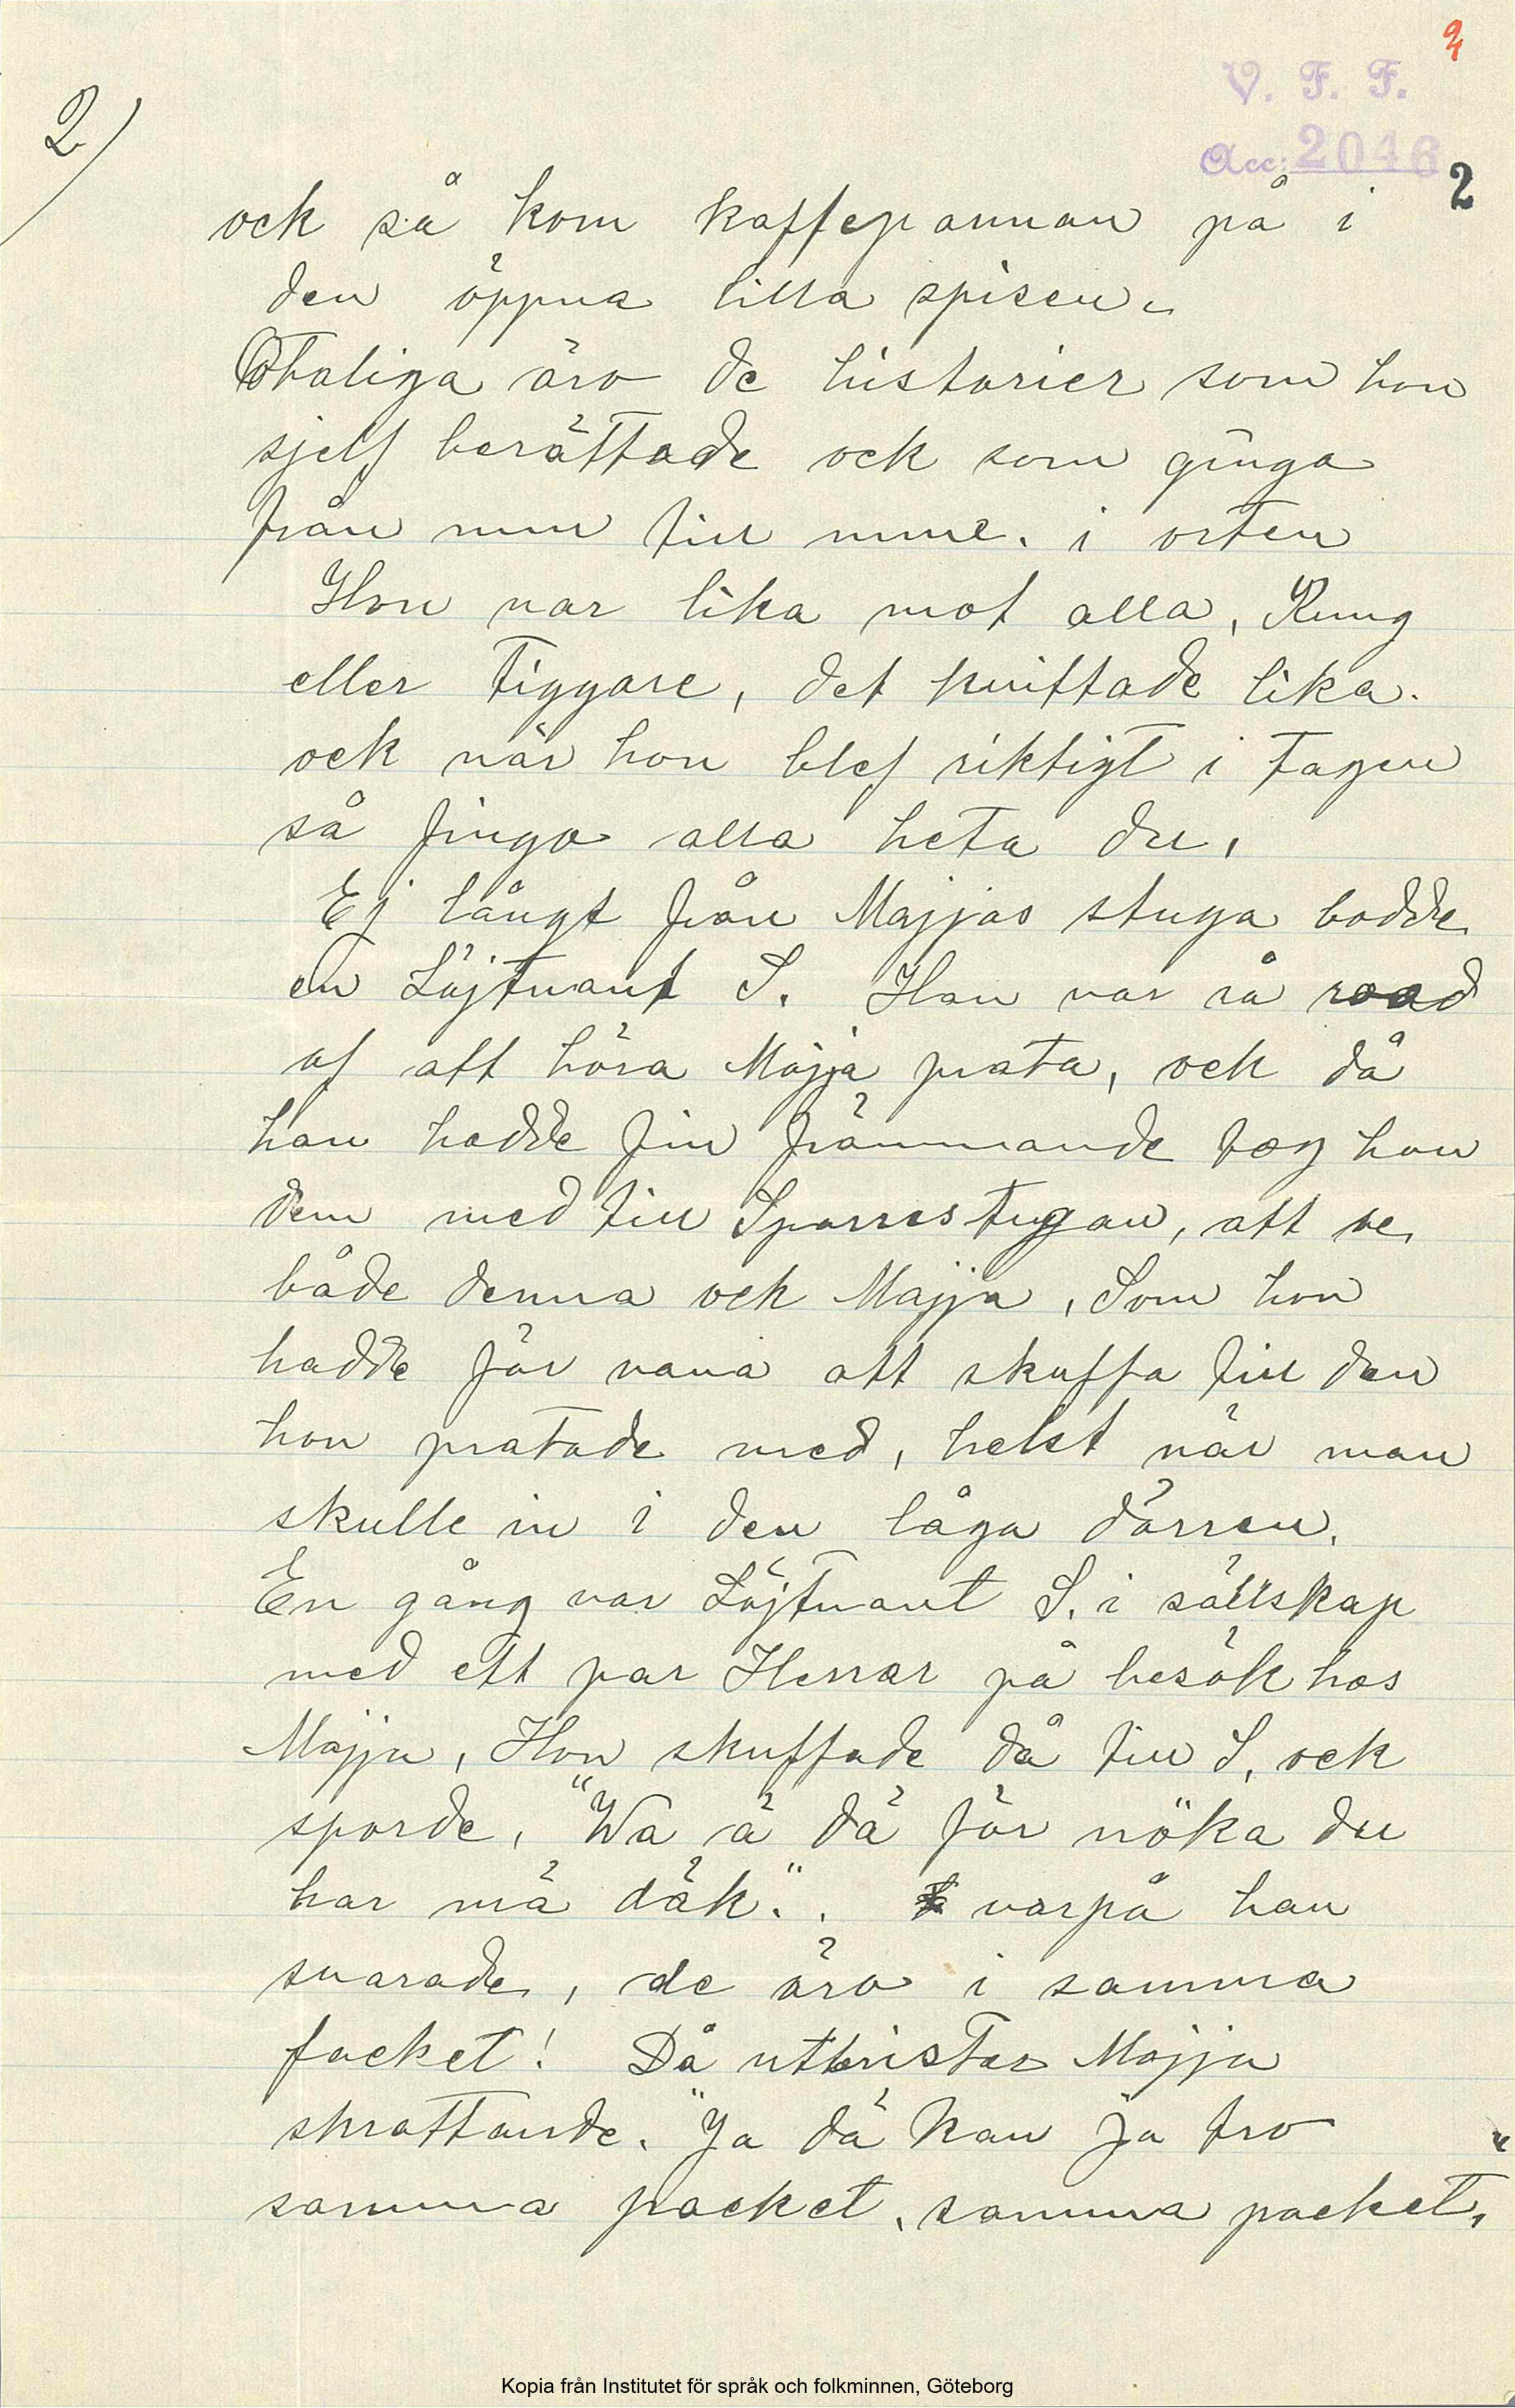 2/
V. F. F.
Acc: 2046
2
ock så kom kaffepannan på i
den öppna lilla spisen.
Otaliga äro de historier som hon
sjelf berättade ock som gingo
från mun till mun. i orten
Hon var lika mot alla, Kung
eller Tiggare, det kvittade lika.
ock när hon blef riktigt i tagen
så fingo alla heta du,
Ej långt från Majjas stuga bodde
en Löjtnant S. Han var så road
af att höra Majja prata, ock då
han hadde fin främmande tog han
dem med till Sparrestugan, att se
både denna ock Majja, Som hon
hadde för vana att skuffa till den
hon pratade med, helst när man
skulle in i den låga dörren.
En gång var Löjtnant S. i sällskap
med ett par Herrar på besök hos
Majja, Hon skuffade då till S, ock
sporde, "Wa ä dä för nöka du
har mä däk.". varpå han
svarade, de äro i samma
facket! Då utbrister Majja
skrattande. "Ja dä kan ja tro
samma packet, samma packet,"
Kopia från Institutet för språk och folkminnen, Göteborg